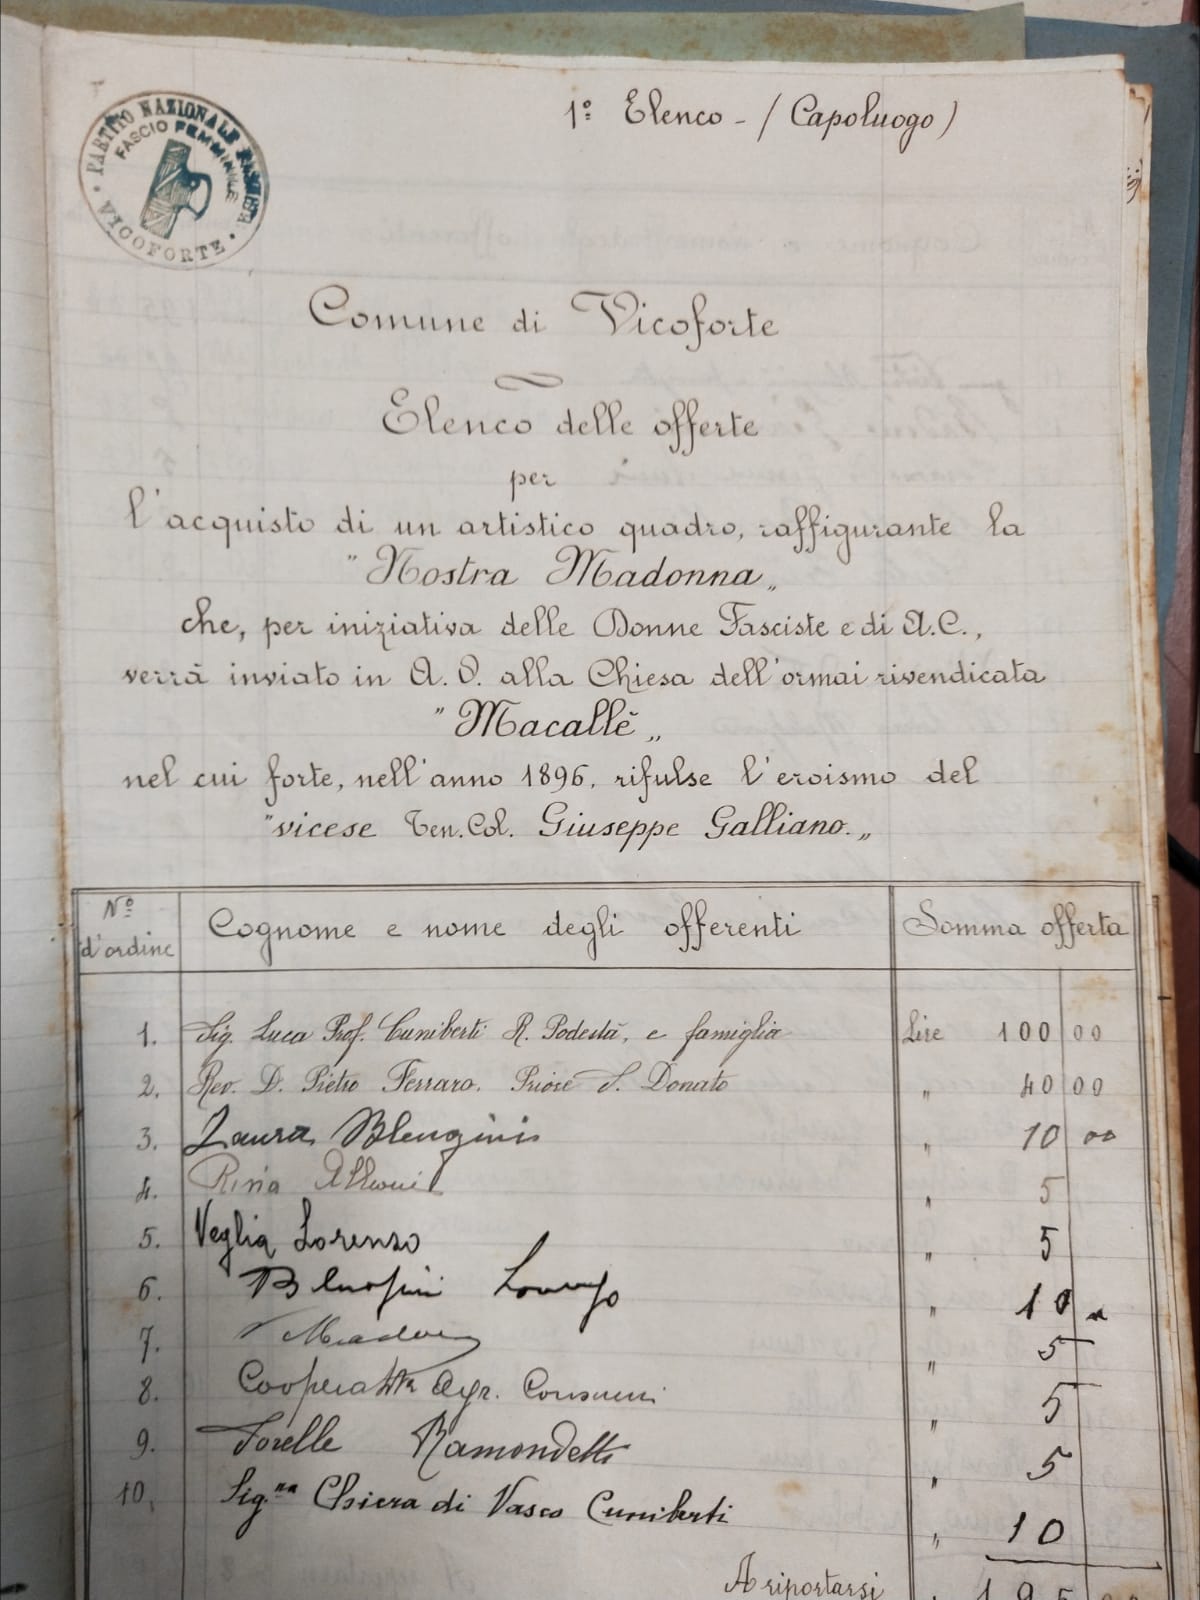 1º Elenco - (Capoluogo)
PARTITO NAZIONALE FASCISTA
FASCIO FEMMINILE
· VICOFORTE ·
Comune di Vicoforte
Elenco delle offerte
per
l'acquisto di un artistico quadro, raffigurante la
"Nostra Madonna„
che, per iniziativa delle Donne Fasciste e di A.C.,
verrà inviato in A. O. alla Chiesa dell'ormai rivendicata
"Macallè„
nel cui forte, nell'anno 1896, rifulse l'eroismo del
"vicese Ten. Col. Giuseppe Galliano.„
Nº d'ordine Cognome e nome degli offerenti Somma offerta
1. Sig. Luca Prof. Cuniberti R. Podestà, e famiglia Lire 100 00
2. Rev. D. Pietro Ferraro. Priore S. Donato " 40 00
3. Laura Blengini " 10 00
4. Rina " 5
5. Veglia Lorenzo " 5
6. " 10
7. " 5
8. Cooperativa Agr. Consumi " 5
9. Sorelle Ramondetti " 5
10. Sig.na Chiera di Vasco Cuniberti " 10
A riportarsi 195